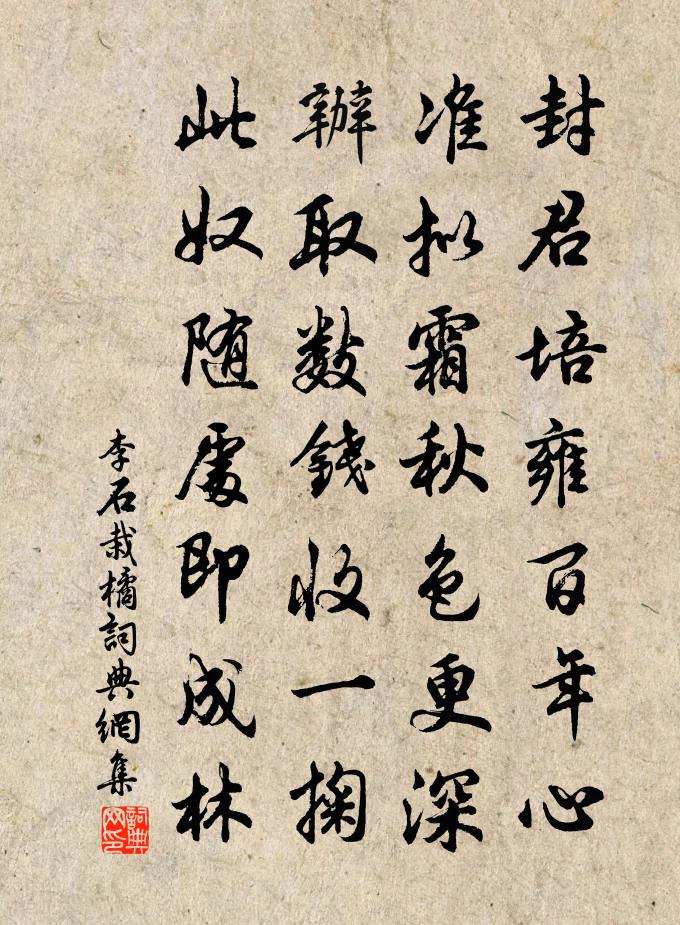 封君培雍百年心
准拟霜秋色更深
辦取数錢收一掬
此奴随處即成林
李石栽橘詞典網集
詞典网印